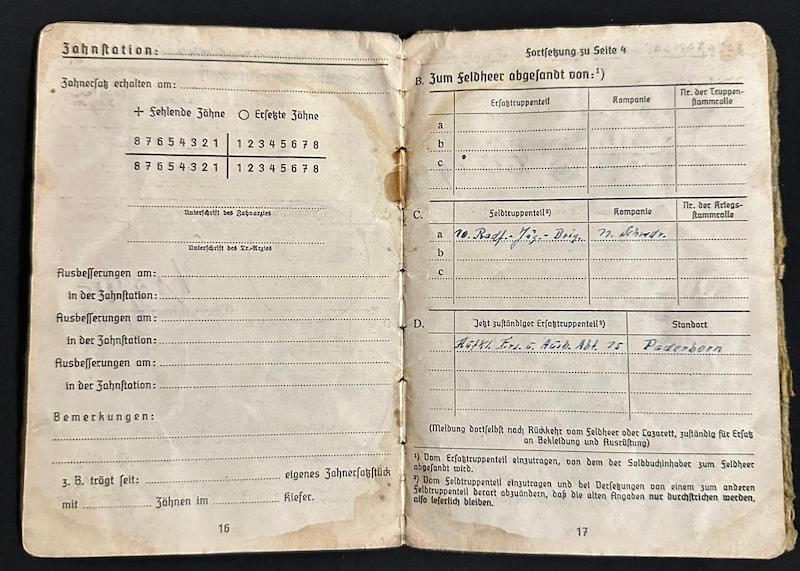 Zahnstation:
Zahnersatz erhalten am:
+ Fehlende Zähne ○ Ersetzte Zähne
8 7 6 5 4 3 2 1 1 2 3 4 5 6 7 8
8 7 6 5 4 3 2 1 1 2 3 4 5 6 7 8
Unterschrift des Zahnarztes
Unterschrift des Tr.-Arztes
Ausbesserungen am:
in der Zahnstation:
Ausbesserungen am:
in der Zahnstation:
Ausbesserungen am:
in der Zahnstation:
Bemerkungen:
z. B. trägt seit: eigenes Zahnersatzstück
mit Zähnen im Kiefer.
16
Fortsetzung zu Seite 4
B. Zum Feldheer abgesandt von:¹)
Ersatztruppenteil Kompanie Nr. der Truppen-
stammrolle
a
b
c
C. Feldtruppenteil²) Kompanie Nr. der Kriegs-
stammrolle
a 10. Radf.-Jäg.-Brig. n. Schwdr.
b
c
D. Jetzt zuständiger Ersatztruppenteil²) Standort
Aufkl. Ers. u. Ausb. Abt. 15 Paderborn
(Meldung dortselbst nach Rückkehr vom Feldheer oder Lazarett, zuständig für Ersatz
an Bekleidung und Ausrüstung)
¹) Vom Ersatztruppenteil einzutragen, von dem der Soldbuchinhaber zum Feldheer
abgesandt wird.
²) Vom Feldtruppenteil einzutragen und bei Versetzungen von einem zum anderen
Feldtruppenteil derart abzuändern, daß die alten Angaben nur durchstrichen werden,
also leserlich bleiben.
17